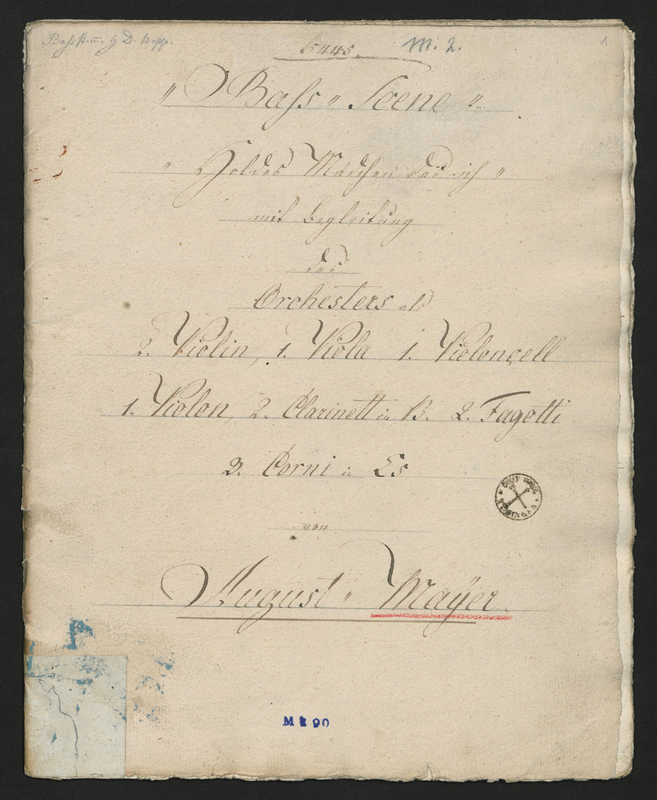 6445. M. 2. 1
„ Bass „ Scene „
„ Holdes Mädchen das ich „
mit Begleitung
des
Orchesters als
2. Violin, 1. Viola 1. Violoncell
1. Violon, 2. Clarinett in B. 2. Fagotti
2. Corni in Es
von
August „ Mayer
M k 90